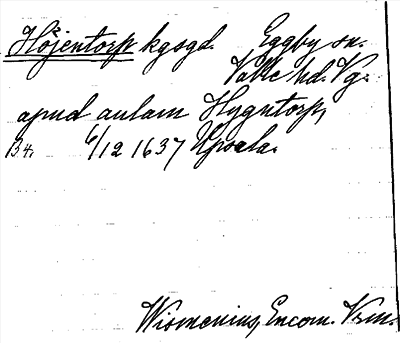 Höjentorp kgsgd. Eggby sn.
Valle hd. Vg.
apud aulam Hygntorp,
B4. 6/12 1637 Upsala.
Wismenius, Encom. Vrm.